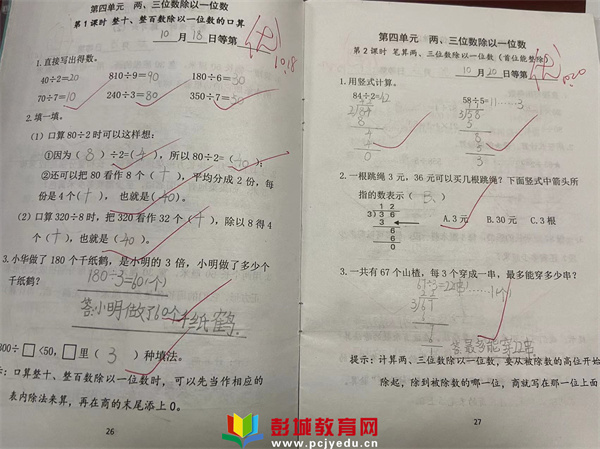 第四单元 两、三位数除以一位数
第1课时 整十、整百数除以一位数的口算
10月18日等第
10.18
1.直接写出得数。
40÷2=20 810÷9=90 180÷6=30
70÷7=10 240÷3=80 350÷7=50
2.填一填。
(1)口算80÷2时可以这样想:
①因为(8)÷2=(4),所以80÷2=(40);
②还可以把80看作8个(十),平均分成2份,每
份是4个(十),也就是(40)。
(2)口算320÷8时,把320看作32个(十),除以8得4
个(十),也就是(40)。
3.小华做了180个千纸鹤,是小明的3倍,小明做了多少个
千纸鹤?
180÷3=60(个)
答:小明做了60个千纸鹤.
300÷□<50,□里(3)种填法。
:口算整十、整百数除以一位数时,可以先当作相应的
表内除法来算,再在商的末尾添上0。
26
第四单元 两、三位数除以一位数
第2课时 笔算两、三位数除以一位数(首位能整除)
10月20日等第
10.20
1.用竖式计算。
84÷2=42 58÷5=11……3
2.一根跳绳3元,36元可以买几根跳绳?下面竖式中箭头所
指的数表示(B)
1 2
3 3 6
3
6
6
0
A.3元 B.30元 C.3根
3.一共有67个山楂,每3个穿成一串,最多能穿多少串?
67÷3=22(串)……1(个)
答:最多能穿22串.
提示:计算两、三位数除以一位数,要从被除数的高位开始
除起,除到被除数的哪一位,商就写在那一位上面
27
彭城教育网
www.pcjyedu.cn